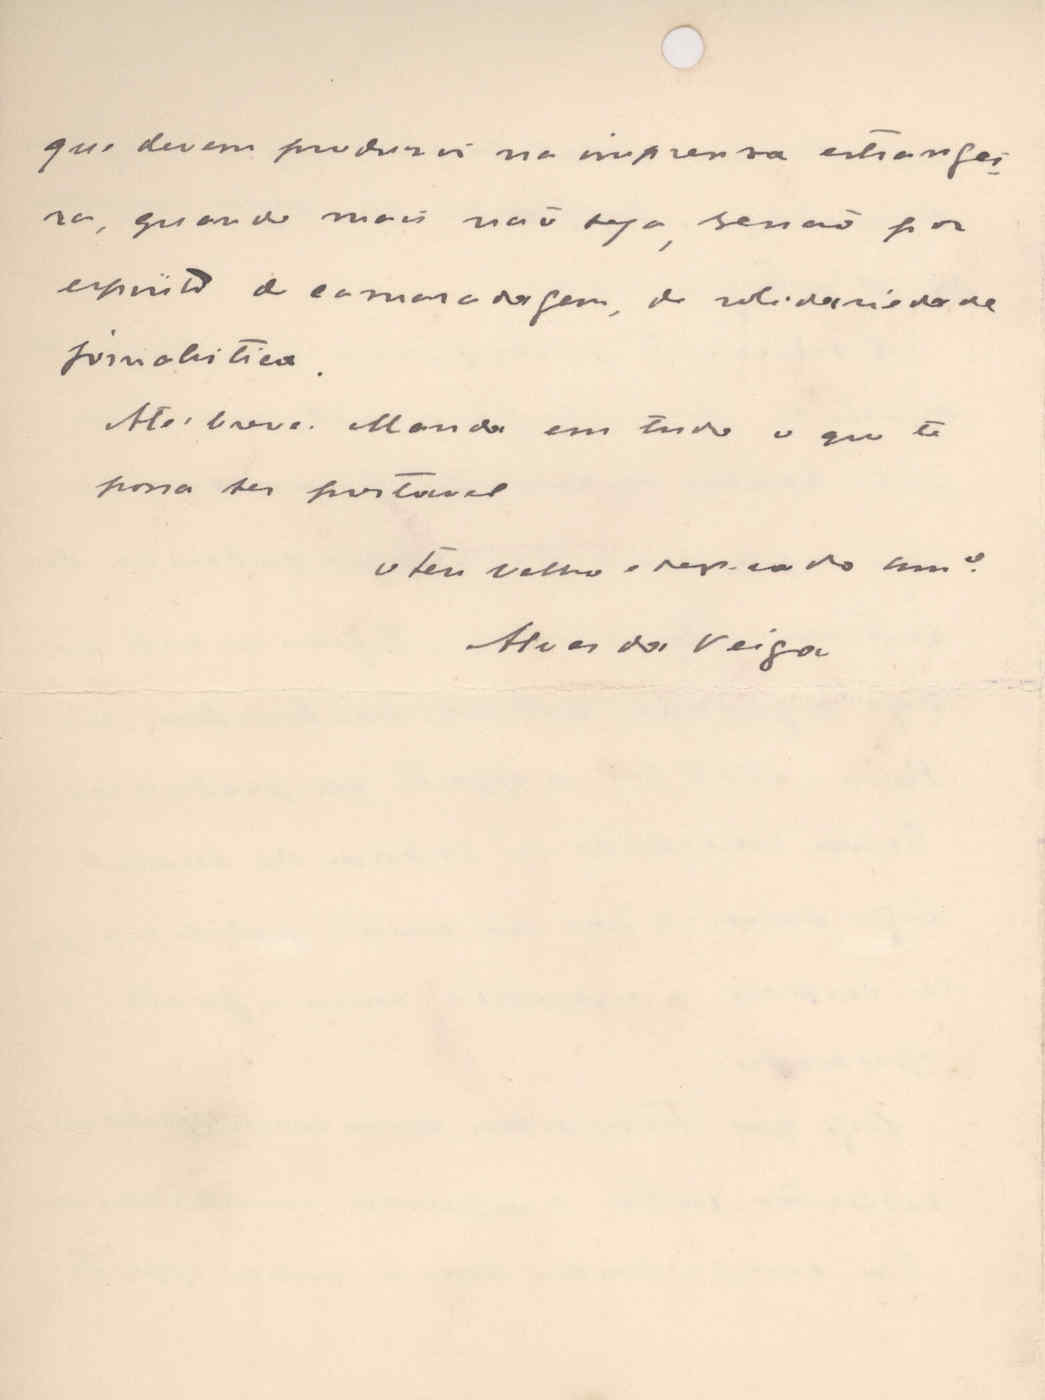 que devem produzir na imprensa estrangei-
ra, quando mais não seja, senão por
espirito de camaradagem, de solidariedade
jornalistica.
Até breve. Manda em tudo o que te
possa ser prestavel
o teu velho e dedicado amº.
Alves da Veiga